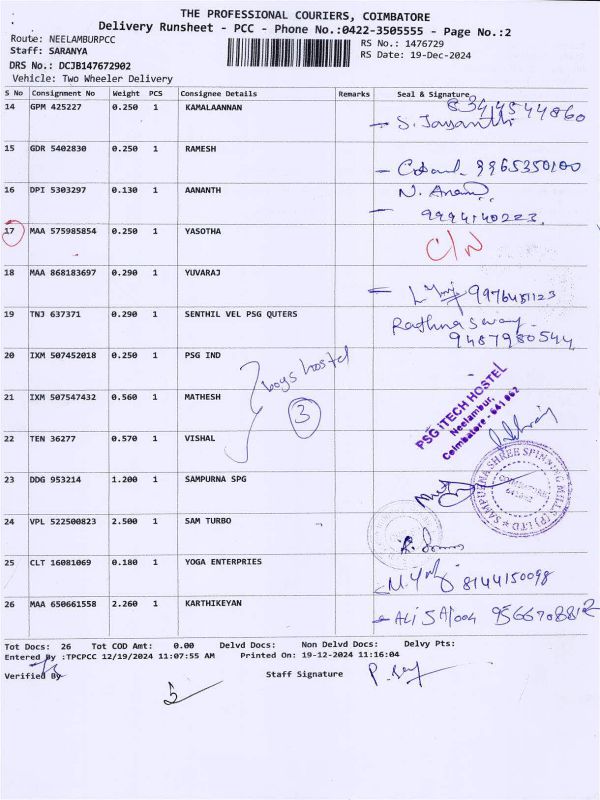 THE PROFESSIONAL COURIERS, COIMBATORE
Delivery Runsheet - PCC - Phone No.:0422-3505555 - Page No.:2
Route: NEELAMBURPCC
RS No.: 1476729
Staff: SARANYA
RS Date: 19-Dec-2024
DRS No.: DCJB147672902
Vehicle: Two Wheeler Delivery
S No Consignment No Weight PCS Consignee Details Remarks Seal & Signature
14 GPM 425227 0.250 1 KAMALAANNAN
8344544860
S. Jayanthi
15 GDR 5402830 0.250 1 RAMESH
9965350100
16 DPI 5303297 0.130 1 AANANTH
N. Anand
9994140223
17 MAA 575985854 0.250 1 YASOTHA
C/N
18 MAA 868183697 0.290 1 YUVARAJ
19 TNJ 637371 0.290 1 SENTHIL VEL PSG QUTERS
Rathna Swamy
9487980544
20 IXM 507452018 0.250 1 PSG IND
boys hostel
21 IXM 507547432 0.560 1 MATHESH
3
PSG iTECH HOSTEL
Neelambur,
Coimbatore - 641 062
22 TEN 36277 0.570 1 VISHAL
23 DDG 953214 1.200 1 SAMPURNA SPG
SAMPURNA SHREE SPINNING MILLS (P) LTD
24 VPL 522500823 2.500 1 SAM TURBO
25 CLT 16081069 0.180 1 YOGA ENTERPRIES
8144150098
26 MAA 650661558 2.260 1 KARTHIKEYAN
Tot Docs: 26 Tot COD Amt: 0.00 Delvd Docs: Non Delvd Docs: Delvy Pts:
Entered By :TPCPCC 12/19/2024 11:07:55 AM Printed On: 19-12-2024 11:16:04
Verified By
Staff Signature